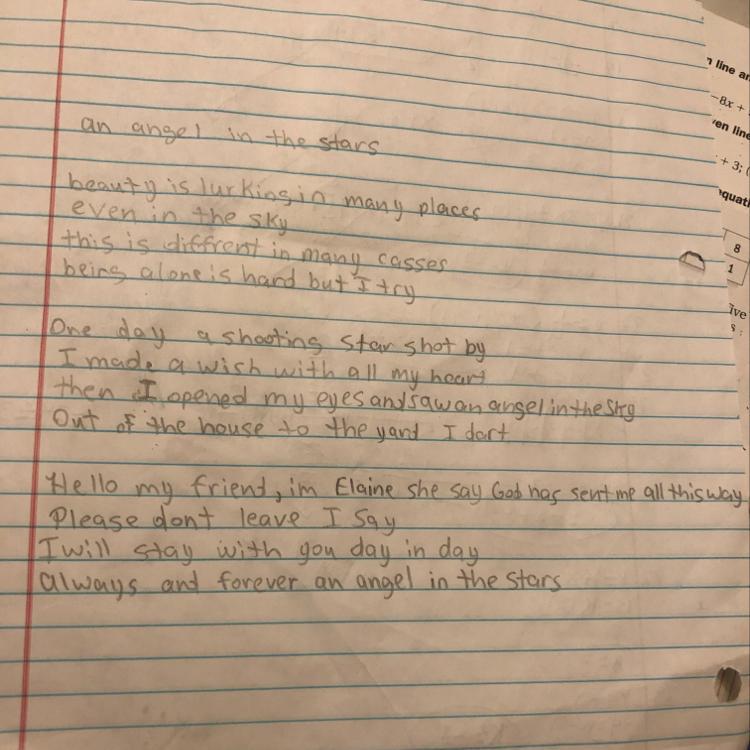 an angel in the stars
beauty is lurking in many places
even in the sky
this is diffrent in many casses
being alone is hard but I try
One day a shooting star shot by
I made a wish with all my heart
then I opened my eyes and saw an angel in the sky
Out of the house to the yard I dart
Hello my friend, im Elaine she say God has sent me all this way
Please dont leave I say
I will stay with you day in day
always and forever an angel in the stars
line
-8x +
line
+ 3; (
8
1